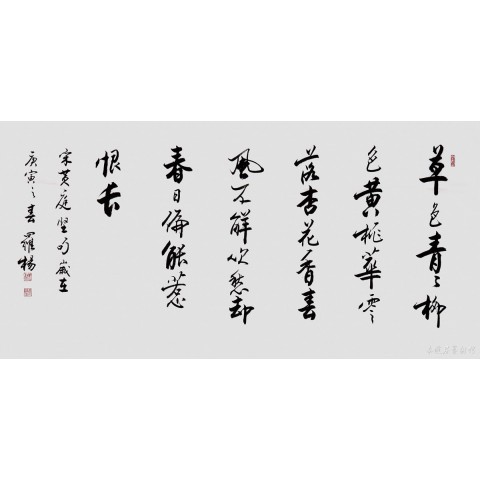 草色青々柳
色黄桃華零
落杏花香春
風不解吹愁却
春日偏能惹
恨长
宋黄庭坚句歲在
庚寅之春羅楊